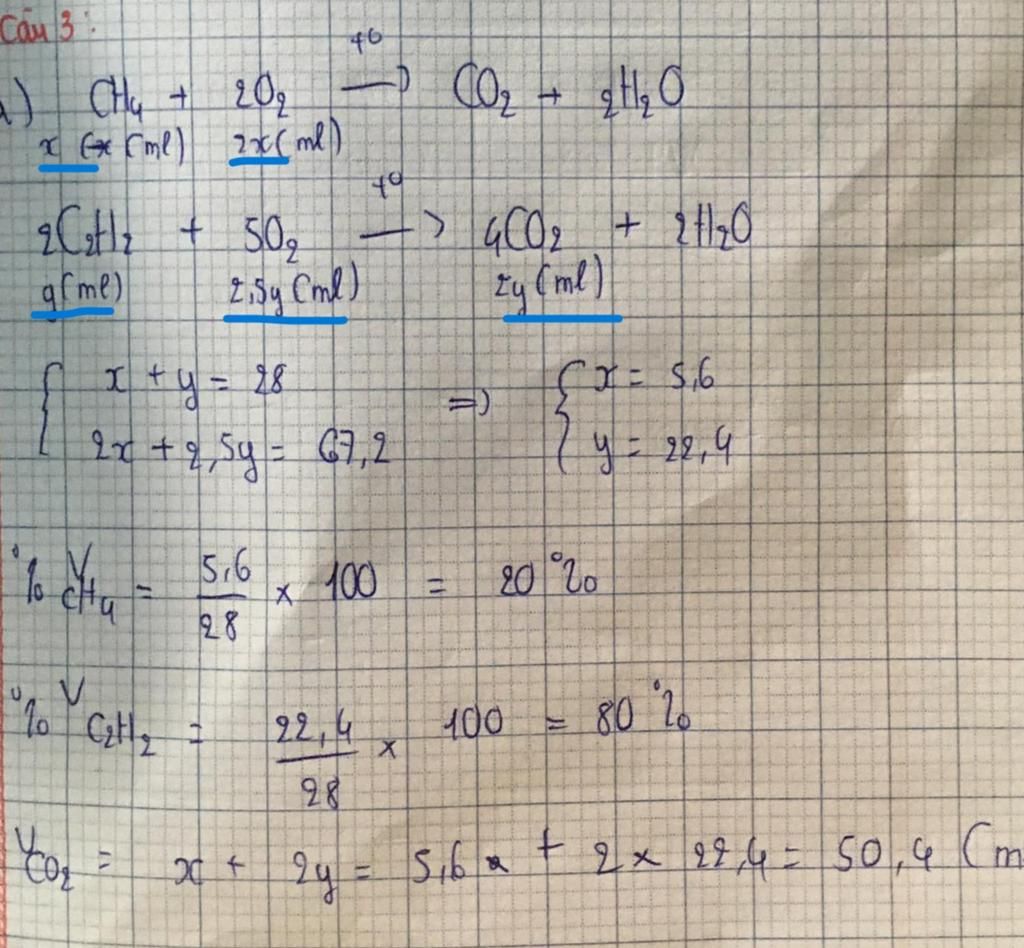 Câu 3:
a) CH4 + 2O2 —t°→ CO2 + 2H2O
x ← x (ml) 2x (ml)
2C2H2 + 5O2 —t°→ 4CO2 + 2H2O
y (ml) 2,5y (ml) 2y (ml)
{ x + y = 28 => { x = 5,6
2x + 2,5y = 67,2 y = 22,4
% V CH4 = 5,6/28 x 100 = 20%
% V C2H2 = 22,4/28 x 100 = 80%
V CO2 = x + 2y = 5,6 + 2 x 22,4 = 50,4 (m